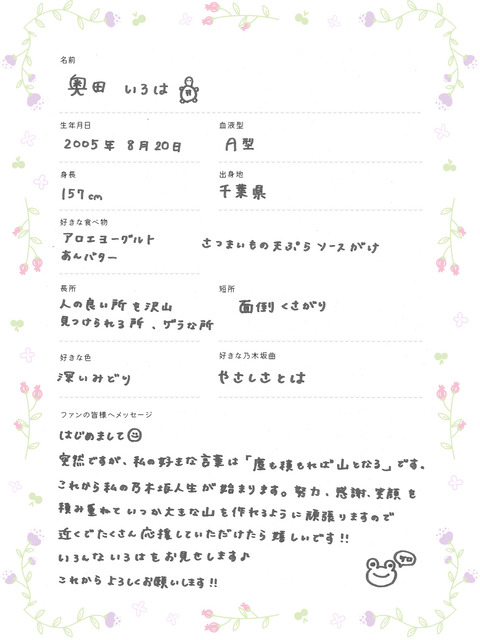 名前
奥田 いろは
生年月日 血液型
2005年 8月20日 A型
身長 出身地
157cm 千葉県
好きな食べ物
アロエヨーグルト さつまいもの天ぷら ソースがけ
あんバター
長所 短所
人の良い所を沢山 面倒くさがり
見つけられる所、ゲラな所
好きな色 好きな乃木坂曲
深いみどり やさしさとは
ファンの皆様へメッセージ
はじめまして
突然ですが、私の好きな言葉は「塵も積もれば山となる」です。
これから私の乃木坂人生が始まります。努力、感謝、笑顔を
積み重ねていつか大きな山を作れるように頑張りますので
近くでたくさん応援していただけたら嬉しいです!!
いろんないろはをお見せします♪
これからよろしくお願いします!!
ケロ